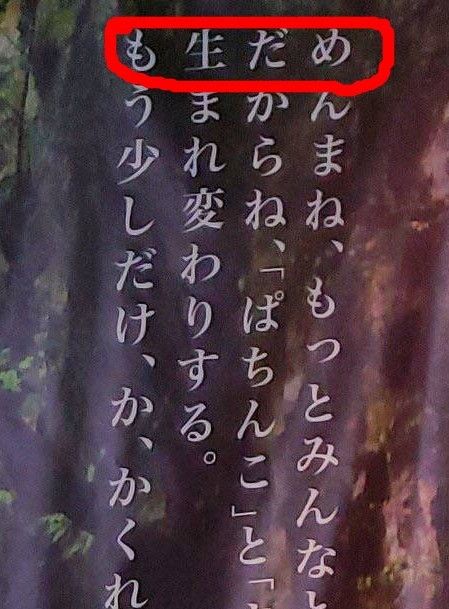 めんまね、もっとみんなと
だからね、「ぱちんこ」と「
生まれ変わりする。
もう少しだけ、か、かくれ